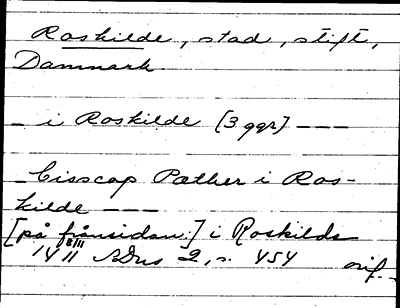 Roskilde, stad, stift,
Danmark.
— i Roskilde [3 ggr] — — —
— Bisscop Pæther i Ros-
kilde — — —
[på frånsidan:] i Roskilde
14 8/11 11 SDns 2, s. 454 orig.